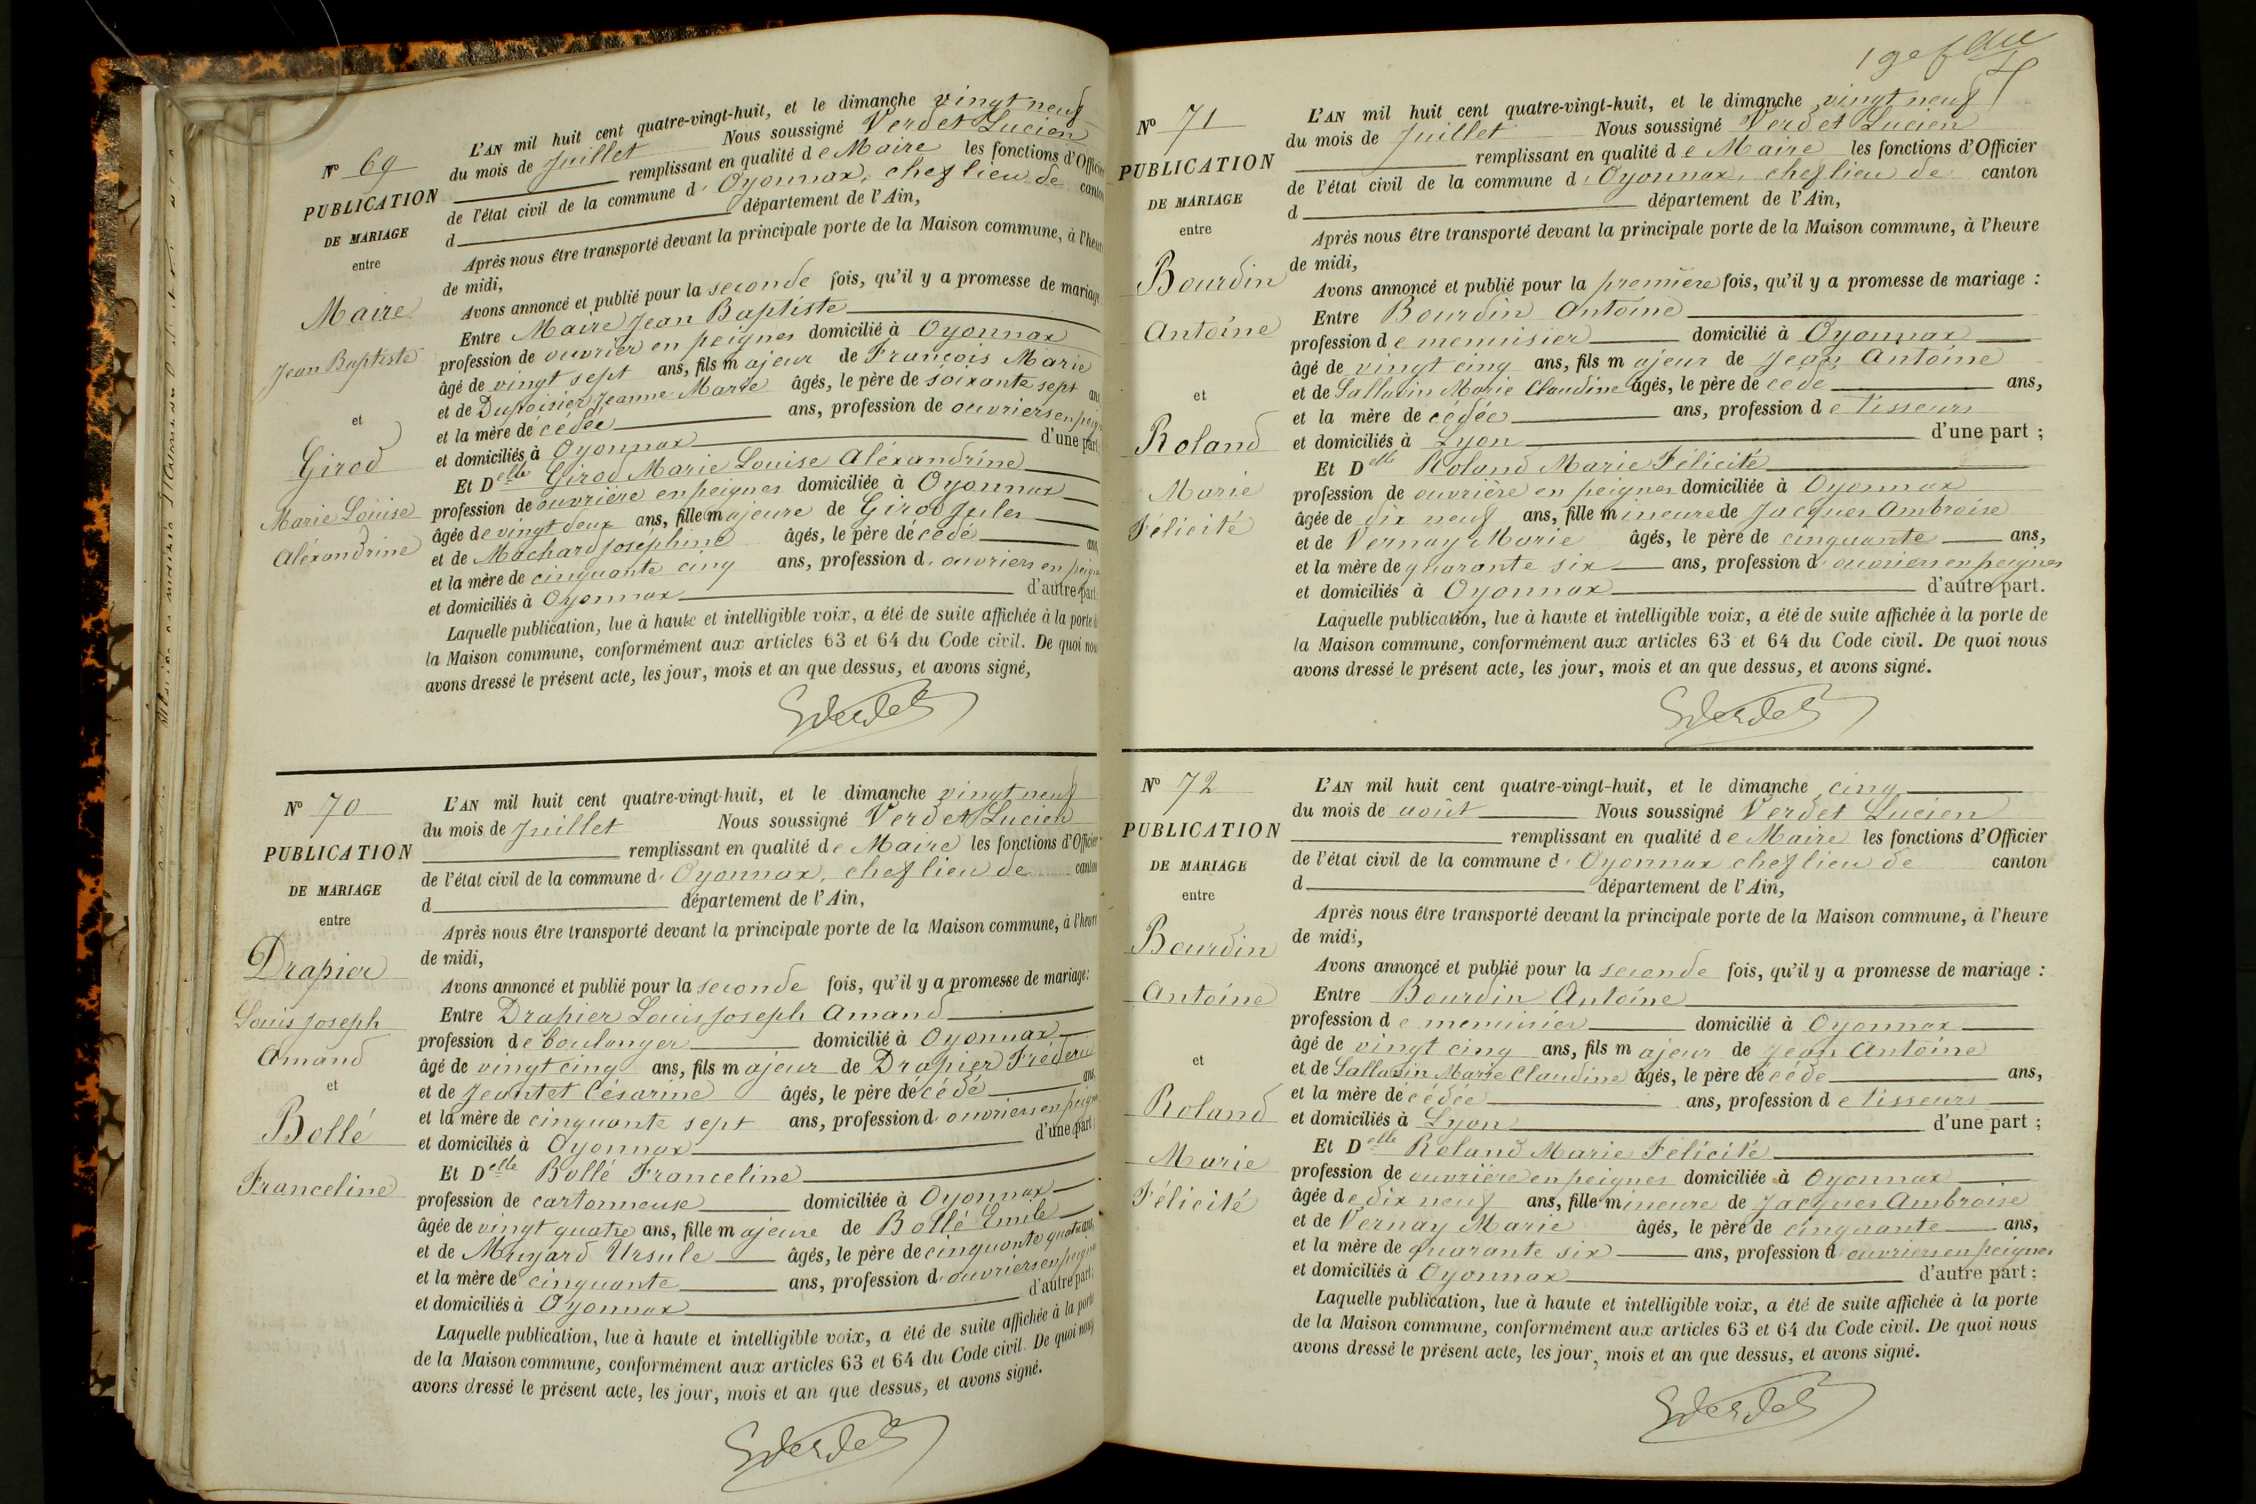 Nº 69
PUBLICATION
DE MARIAGE
entre
Maire
Jean Baptiste
et
Girod
Marie Louise
Aléxandrine
L'AN mil huit cent quatre-vingt-huit, et le dimanche vingt neuf
du mois de Juillet Nous soussigné Verdet Lucien
remplissant en qualité de Maire les fonctions d'Officier
de l'état civil de la commune d' Oyonnax, chef lieu de canton
d département de l'Ain,
Après nous être transporté devant la principale porte de la Maison commune, à l'heure
de midi,
Avons annoncé et publié pour la seconde fois, qu'il y a promesse de mariage
Entre Maire Jean Baptiste
profession de ouvrier en peignes domicilié à Oyonnax
âgé de vingt sept ans, fils majeur de François Marie
et de Dupoisier Jeanne Marie âgés, le père de soixante sept ans
et la mère décédée ans, profession de ouvriers en peign
et domiciliés à Oyonnax d'une part
Et Delle Girod Marie Louise Aléxandrine
profession de ouvrière en peignes domiciliée à Oyonnax
âgée de vingt deux ans, fille majeure de Girod Jules
et de Machard Joséphine âgés, le père décédé ans,
et la mère de cinquante cinq ans, profession d' ouvriers en peign
et domiciliés à Oyonnax d'autre part.
Laquelle publication, lue à haute et intelligible voix, a été de suite affichée à la porte de
la Maison commune, conformément aux articles 63 et 64 du Code civil. De quoi nous
avons dressé le présent acte, les jour, mois et an que dessus, et avons signé,
Verdet
Nº 70
PUBLICATION
DE MARIAGE
entre
Drapier
Louis Joseph
Amand
et
Bollé
Franceline
L'AN mil huit cent quatre-vingt-huit, et le dimanche vingt neuf
du mois de Juillet Nous soussigné Verdet Lucien
remplissant en qualité de Maire les fonctions d'Officier
de l'état civil de la commune d' Oyonnax, chef lieu de canton
d département de l'Ain,
Après nous être transporté devant la principale porte de la Maison commune, à l'heure
de midi,
Avons annoncé et publié pour la seconde fois, qu'il y a promesse de mariage:
Entre Drapier Louis Joseph Amand
profession de boulanger domicilié à Oyonnax
âgé de vingt cinq ans, fils majeur de Drapier Fréderic
et de Jeantet Césarine âgés, le père décédé ans,
et la mère de cinquante sept ans, profession d' ouvriers en peign
et domiciliés à Oyonnax d'une part;
Et Delle Bollé Franceline
profession de cartonneuse domiciliée à Oyonnax
âgée de vingt quatre ans, fille majeure de Bollé Emile
et de Muyard Ursule âgés, le père de cinquante quatre ans,
et la mère de cinquante ans, profession d' ouvriers en peigne
et domiciliés à Oyonnax d'autre part;
Laquelle publication, lue à haute et intelligible voix, a été de suite affichée à la porte
de la Maison commune, conformément aux articles 63 et 64 du Code civil. De quoi nous
avons dressé le présent acte, les jour, mois et an que dessus, et avons signé.
Verdet
Nº 71
PUBLICATION
DE MARIAGE
entre
Bourdin
Antoine
et
Roland
Marie
Félicité
L'AN mil huit cent quatre-vingt-huit, et le dimanche vingt neuf
du mois de Juillet Nous soussigné Verdet Lucien
remplissant en qualité de Maire les fonctions d'Officier
de l'état civil de la commune d' Oyonnax, chef lieu de canton
d département de l'Ain,
Après nous être transporté devant la principale porte de la Maison commune, à l'heure
de midi,
Avons annoncé et publié pour la première fois, qu'il y a promesse de mariage :
Entre Bourdin Antoine
profession de menuisier domicilié à Oyonnax
âgé de vingt cinq ans, fils majeur de Jean Antoine
et de Sallavin Marie Claudine âgés, le père décédé ans,
et la mère décédée ans, profession de tisseurs
et domiciliés à Lyon d'une part ;
Et Delle Roland Marie Félicité
profession de ouvrière en peignes domiciliée à Oyonnax
âgée de dix neuf ans, fille mineure de Jacques Ambroise
et de Vernay Marie âgés, le père de cinquante ans,
et la mère de quarante six ans, profession d' ouvriers en peignes
et domiciliés à Oyonnax d'autre part.
Laquelle publication, lue à haute et intelligible voix, a été de suite affichée à la porte de
la Maison commune, conformément aux articles 63 et 64 du Code civil. De quoi nous
avons dressé le présent acte, les jour, mois et an que dessus, et avons signé.
Verdet
Nº 72
PUBLICATION
DE MARIAGE
entre
Bourdin
Antoine
et
Roland
Marie
Félicité
L'AN mil huit cent quatre-vingt-huit, et le dimanche cinq
du mois de août Nous soussigné Verdet Lucien
remplissant en qualité de Maire les fonctions d'Officier
de l'état civil de la commune d' Oyonnax chef lieu de canton
d département de l'Ain,
Après nous être transporté devant la principale porte de la Maison commune, à l'heure
de midi,
Avons annoncé et publié pour la seconde fois, qu'il y a promesse de mariage :
Entre Bourdin Antoine
profession de menuisier domicilié à Oyonnax
âgé de vingt cinq ans, fils majeur de Jean Antoine
et de Sallavin Marie Claudine âgés, le père décédé ans,
et la mère décédée ans, profession de tisseurs
et domiciliés à Lyon d'une part ;
Et Delle Roland Marie Félicité
profession de ouvrière en peignes domiciliée à Oyonnax
âgée de dix neuf ans, fille mineure de Jacques Ambroise
et de Vernay Marie âgés, le père de cinquante ans,
et la mère de quarante six ans, profession d' ouvriers en peignes
et domiciliés à Oyonnax d'autre part ;
Laquelle publication, lue à haute et intelligible voix, a été de suite affichée à la porte
de la Maison commune, conformément aux articles 63 et 64 du Code civil. De quoi nous
avons dressé le présent acte, les jour, mois et an que dessus, et avons signé.
Verdet